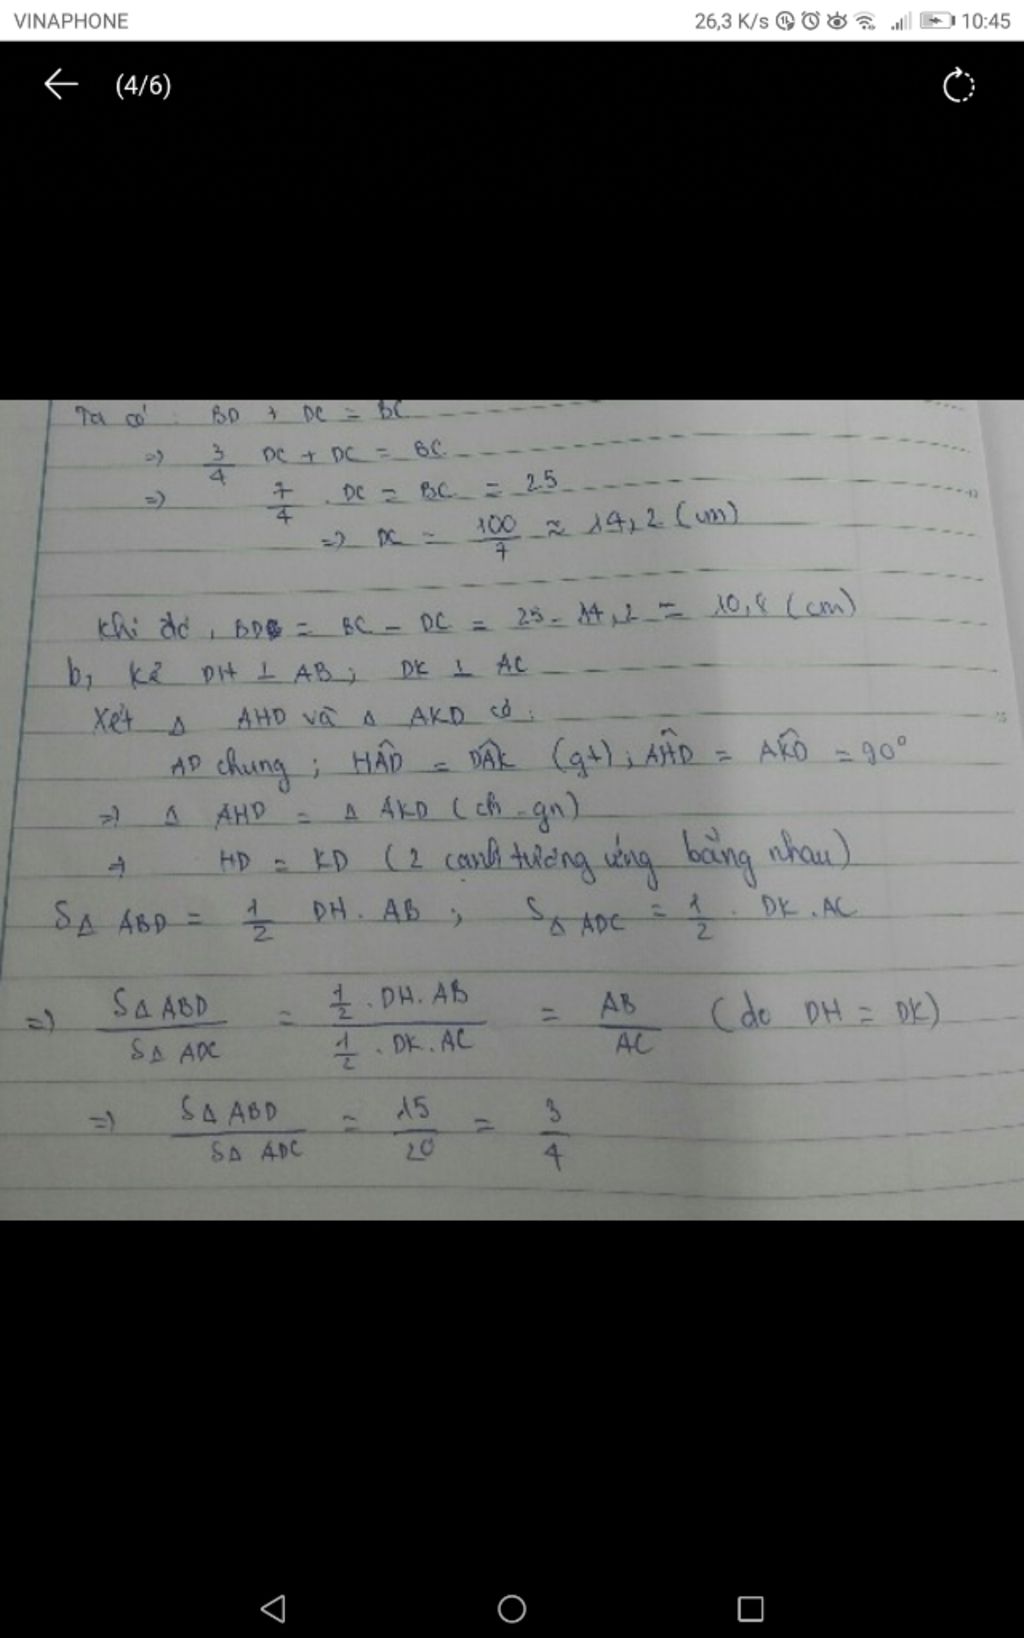 VINAPHONE 26,3 K/s 10:45
(4/6)
Ta có BD + DC = BC
=> 3/4 DC + DC = BC
=> 7/4 . DC = BC = 25
=> DC = 100/7 ≈ 14,2 (cm)
Khi đó, BD = BC - DC = 25 - 14,2 = 10,8 (cm)
b, Kẻ DH ⊥ AB; DK ⊥ AC
Xét Δ AHD và Δ AKD có:
AD chung; HÂD = DÂK (gt); AĤD = AK̂D = 90°
=> Δ AHD = Δ AKD (ch - gn)
=> HD = KD (2 cạnh tương ứng bằng nhau)
SΔ ABD = 1/2 DH . AB; SΔ ADC = 1/2 . DK . AC
=> SΔ ABD / SΔ ADC = 1/2 . DH . AB / 1/2 . DK . AC = AB / AC (do DH = DK)
=> SΔ ABD / SΔ ADC = 15/20 = 3/4